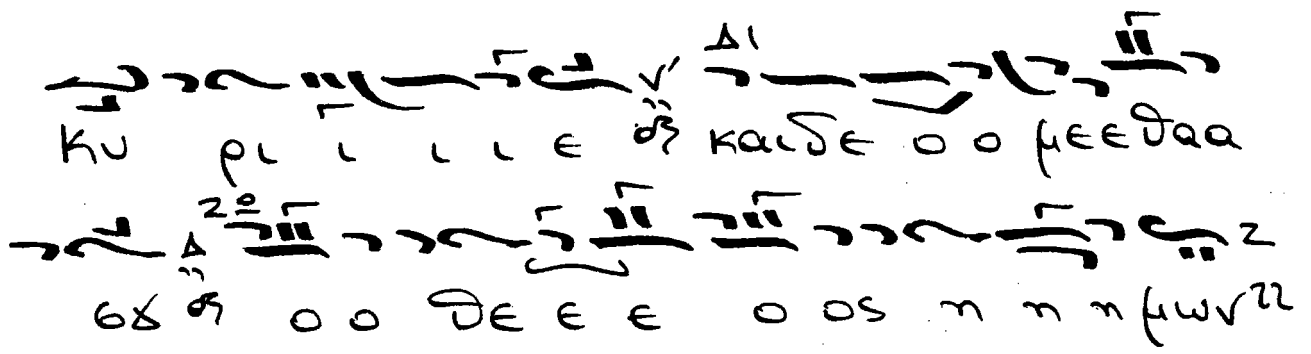 Κυ ρι ι ι ι ε και δε ο ο με ε θα α
σȣ ο ο θε ε ε ο ος η η η μων